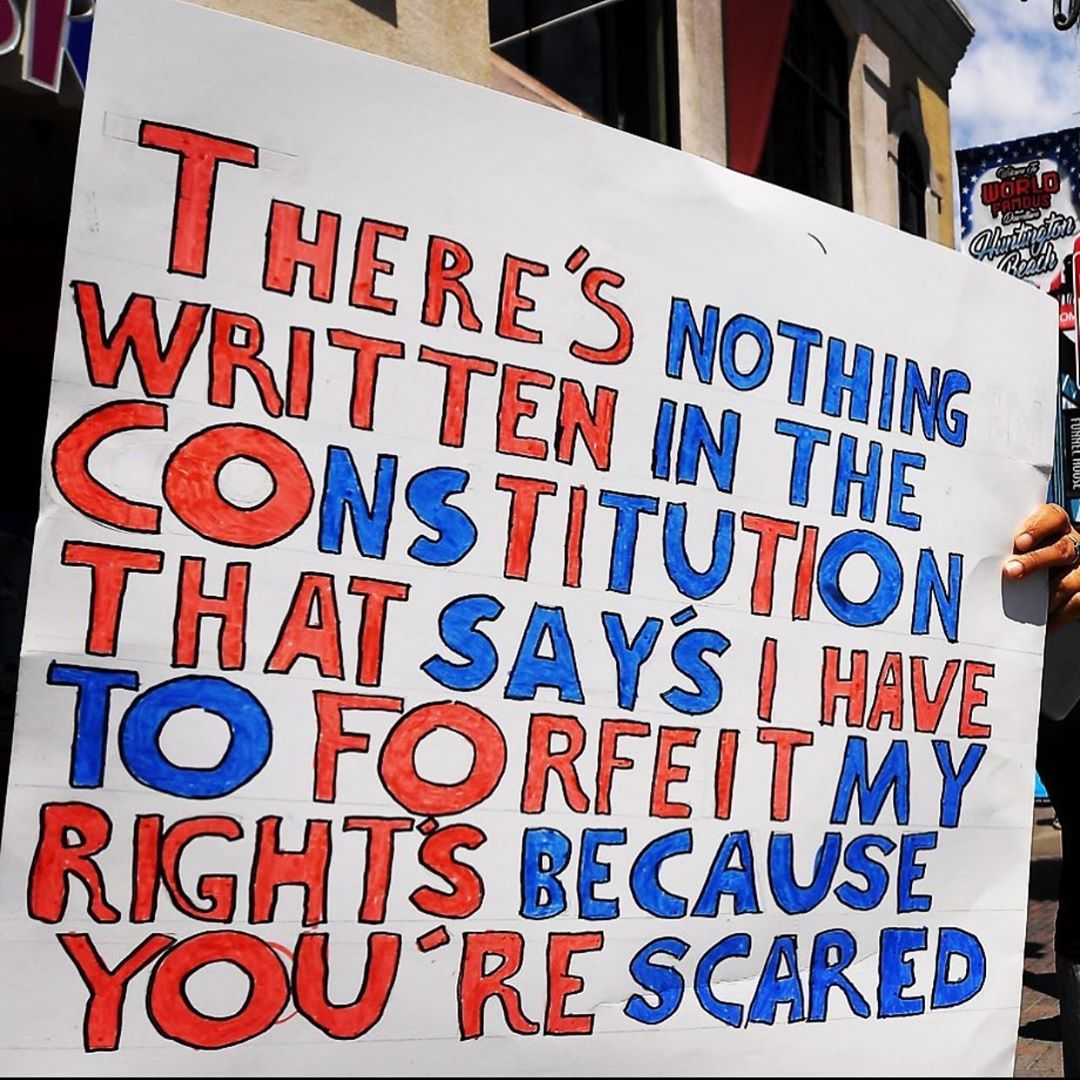 THERE'S NOTHING
WRITTEN IN THE
CONSTITUTION
THAT SAY'S I HAVE
TO FORFEIT MY
RIGHT'S BECAUSE
YOU'RE SCARED
Welcome To
WORLD
FAMOUS
Downtown
Huntington
Beach